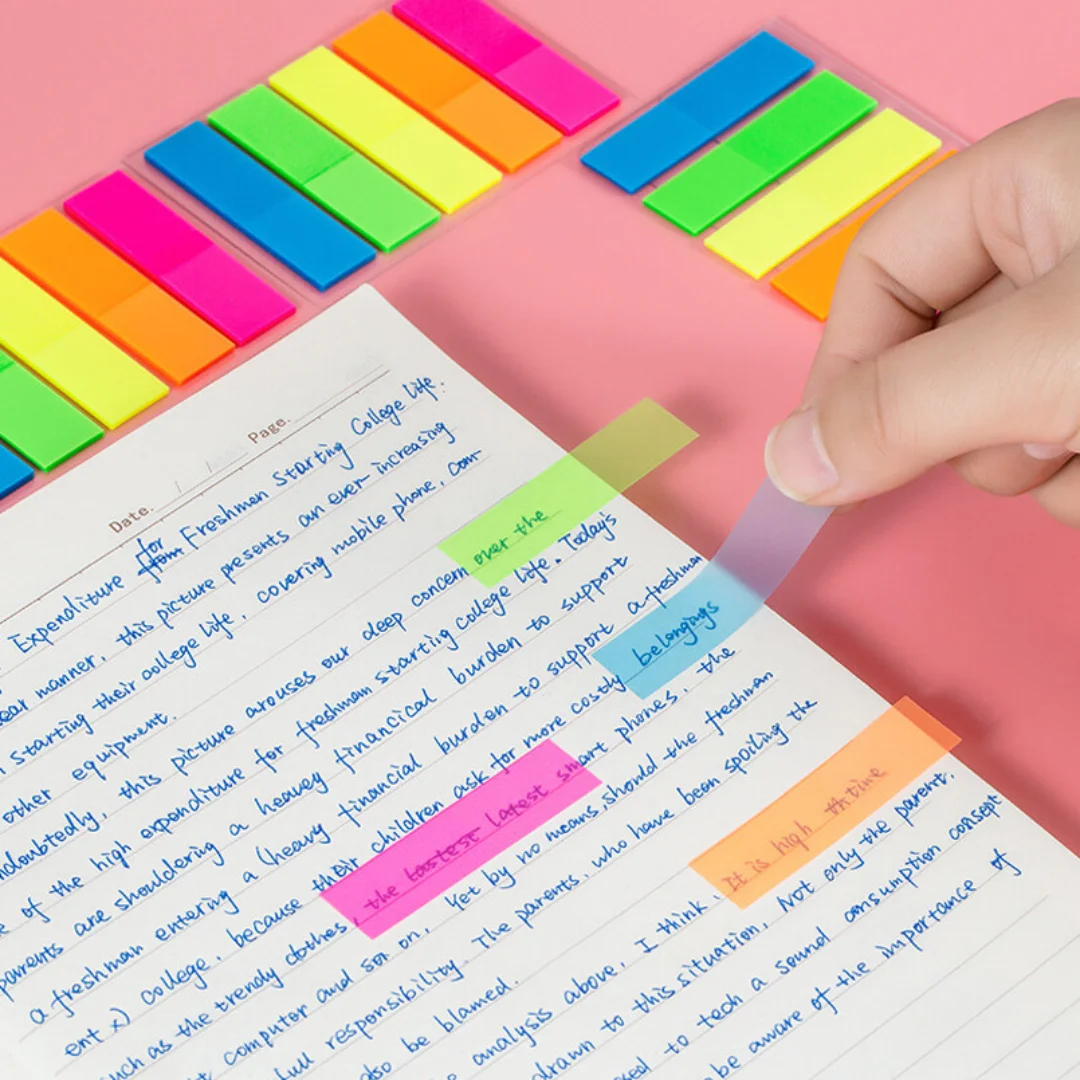 Date. / / Page.
Expenditure for from Freshmen Starting College Life.
ear manner, this picture presents an ever-increasing
starting their college life, covering mobile phone, com-
other equipment.
ndoubtedly, this picture arouses our deep concern over the
e of the high expenditure for freshmen starting college life. Today's
parents are shouldering a heavey financical burden to support
a freshman entering a (heavy financial burden to support a freshman
ent x) college, because their children ask for more costly belongings
such as the trendy clothes, the lastest latest smart phones, the
computer and so on. Yet by no means, should the freshman
full responsibility. The parents, who have been spoiling the
also be blamed.
analysis above, I think, It is high thtime
drawn to this situation, Not only the parent,
sed to tech a sound consumption consept
be aware of the importance of